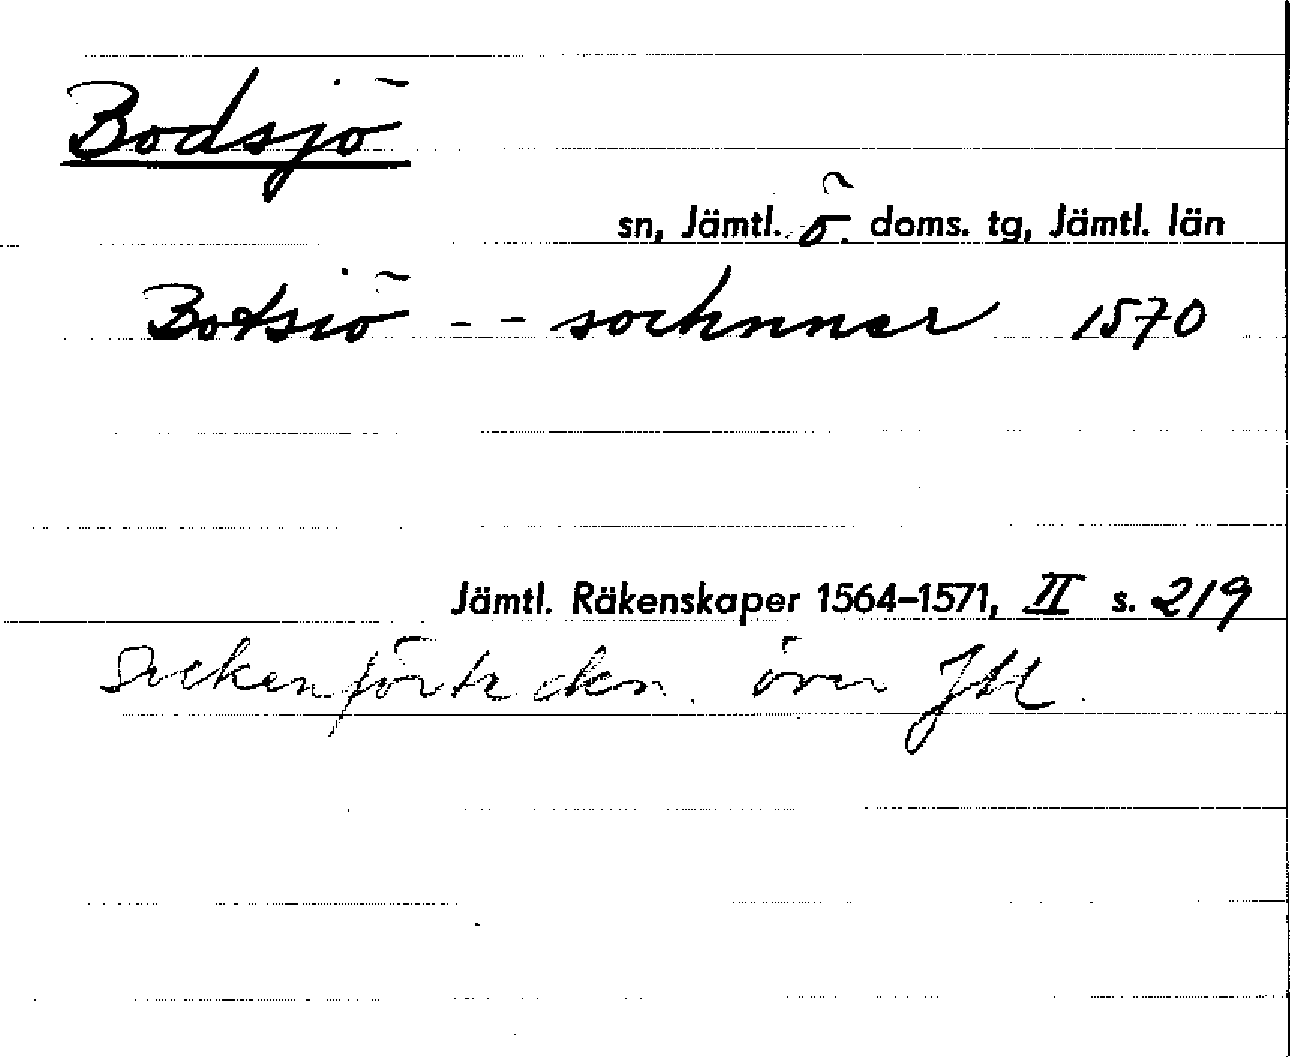 Bodsjö
sn, Jämtl. ö. doms. tg, Jämtl. län
Botsiö - - sochnner 1570
Jämtl. Räkenskaper 1564–1571, II s. 219
Sockenförteckn. över Jtl.